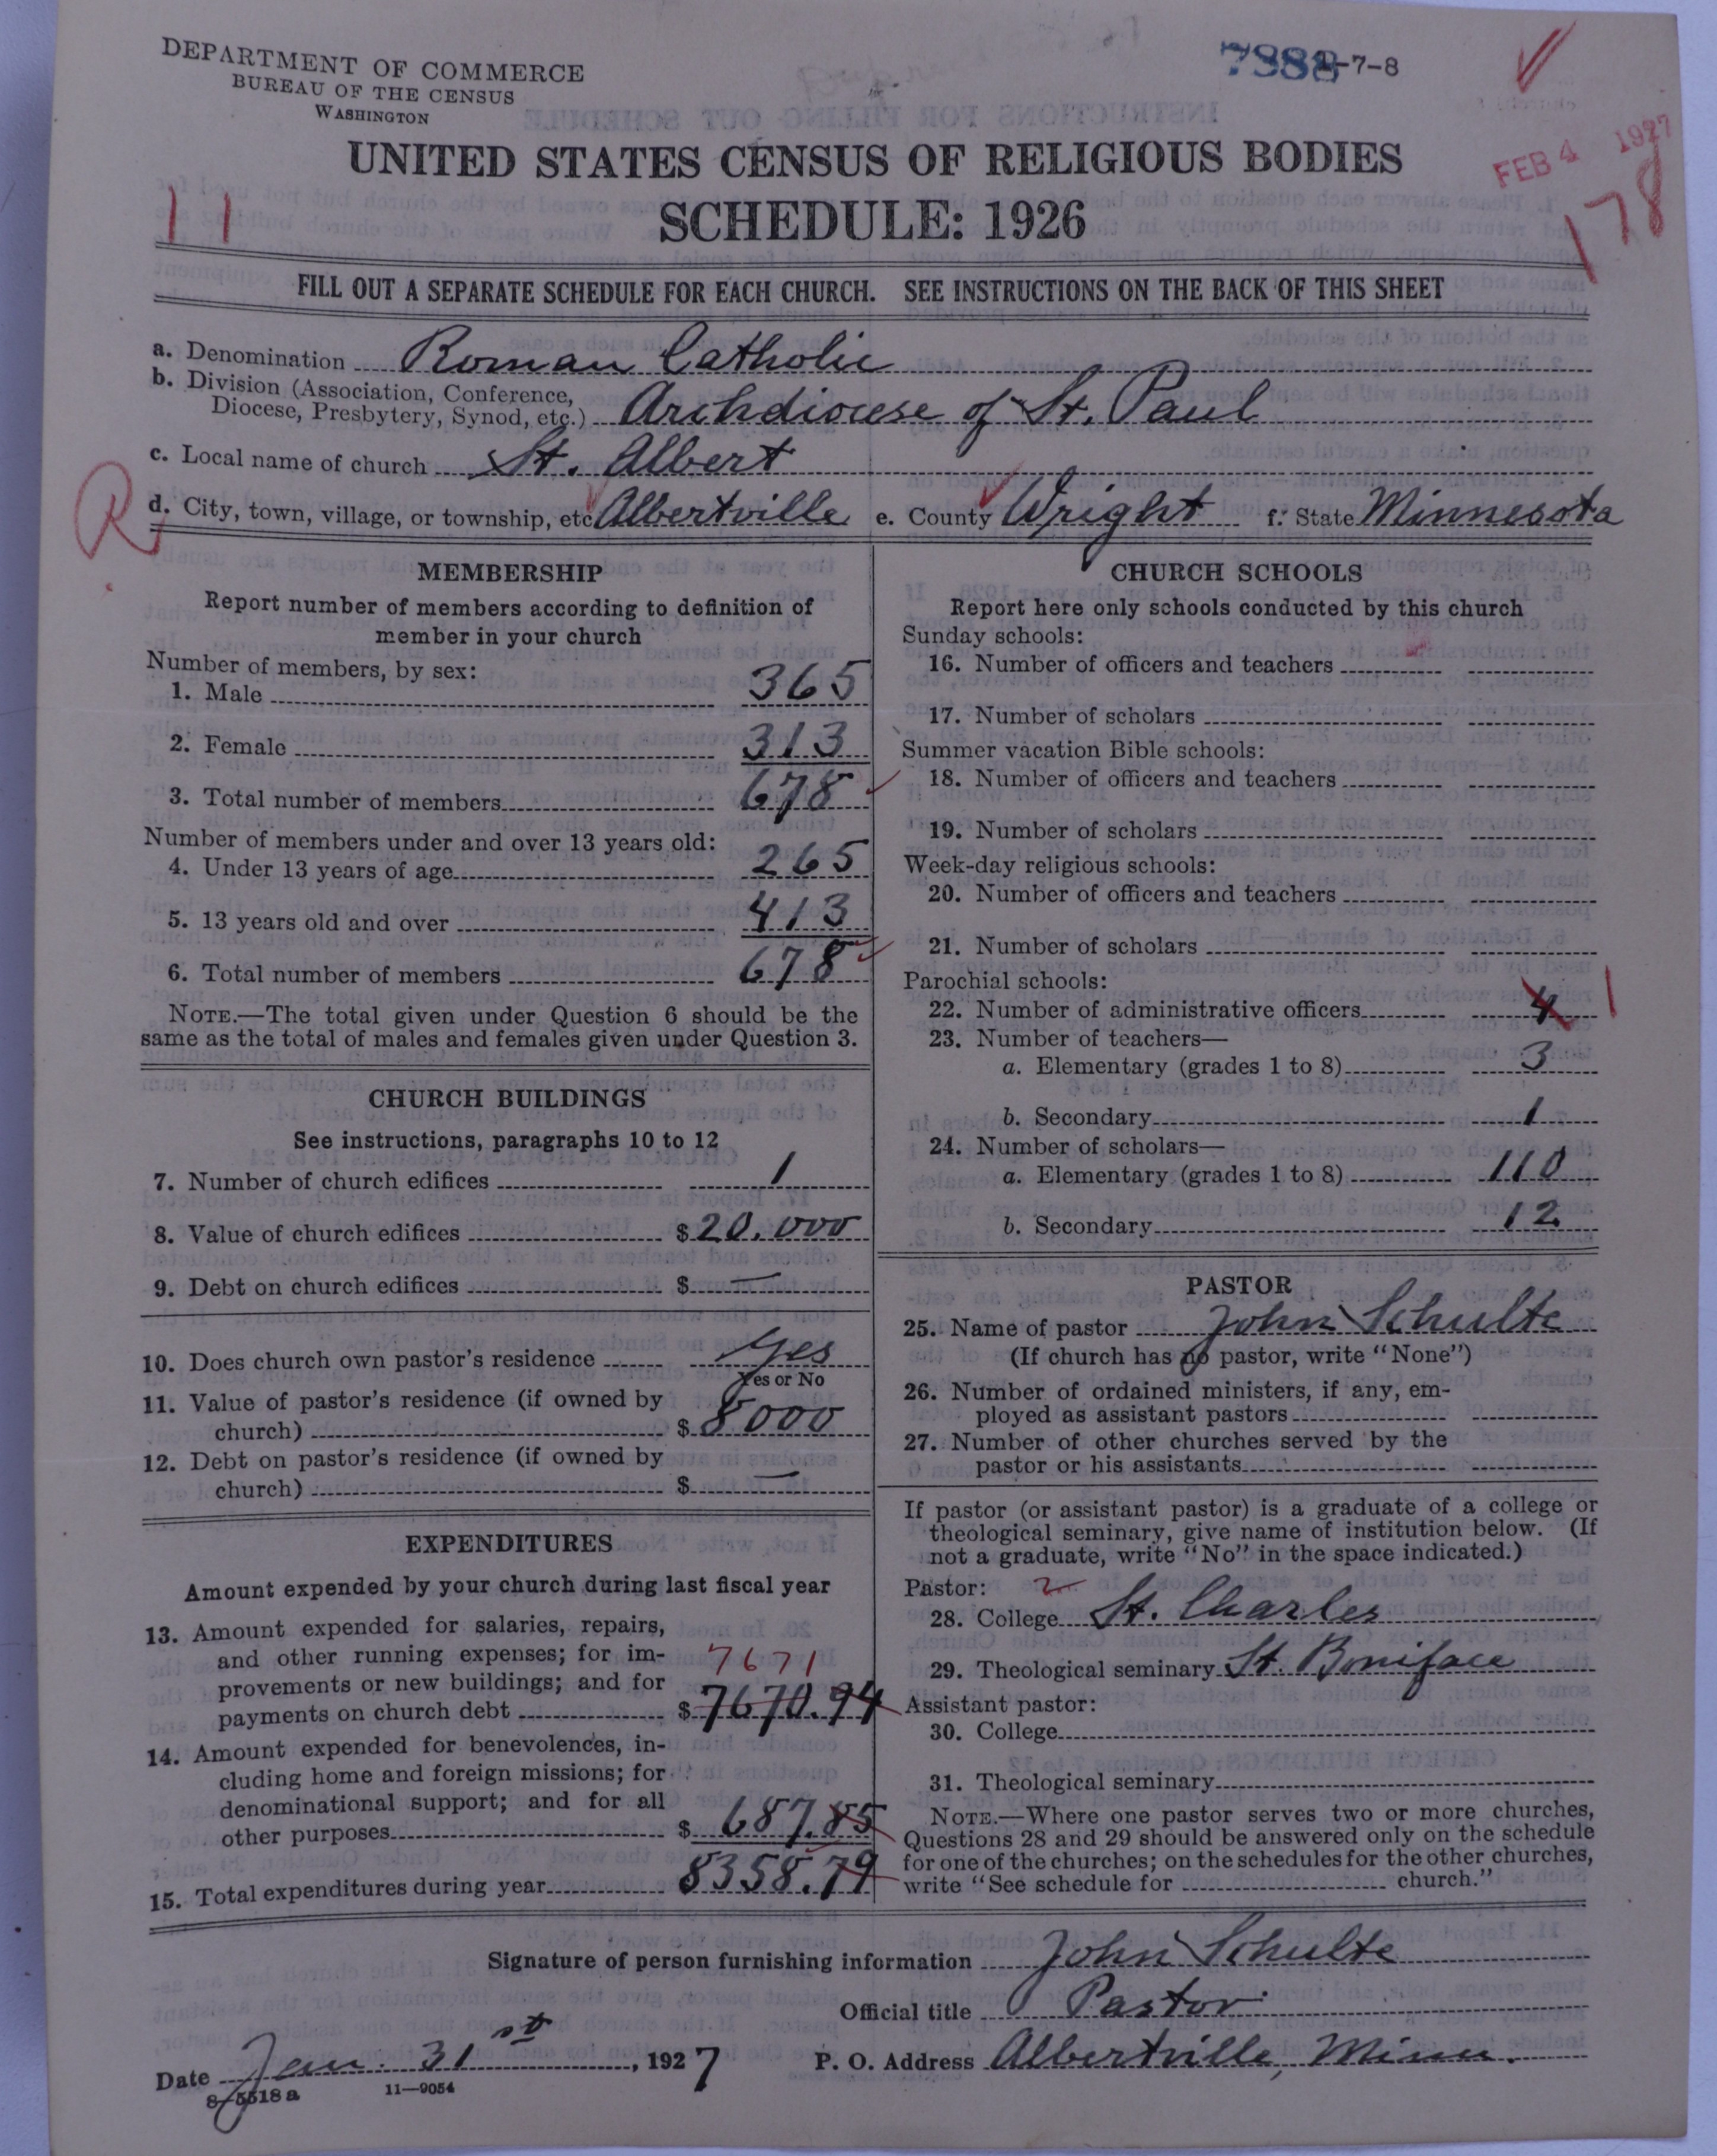 DEPARTMENT OF COMMERCE
BUREAU OF THE CENSUS
WASHINGTON
7888 -7-8
FEB 4 1927
178
UNITED STATES CENSUS OF RELIGIOUS BODIES
SCHEDULE: 1926
11
FILL OUT A SEPARATE SCHEDULE FOR EACH CHURCH. SEE INSTRUCTIONS ON THE BACK OF THIS SHEET
a. Denomination Roman Catholic
b. Division (Association, Conference,
Diocese, Presbytery, Synod, etc.) Archdiocese of St. Paul
c. Local name of church St. Albert
R
d. City, town, village, or township, etc Albertville e. County Wright f. State Minnesota
MEMBERSHIP
Report number of members according to definition of
member in your church
Number of members, by sex:
1. Male 365
2. Female 313
3. Total number of members 678
Number of members under and over 13 years old:
4. Under 13 years of age 265
5. 13 years old and over 413
6. Total number of members 678
NOTE.—The total given under Question 6 should be the
same as the total of males and females given under Question 3.
CHURCH BUILDINGS
See instructions, paragraphs 10 to 12
7. Number of church edifices 1
8. Value of church edifices $20,000
9. Debt on church edifices $ —
10. Does church own pastor's residence Yes
Yes or No
11. Value of pastor's residence (if owned by
church) $ 8000
12. Debt on pastor's residence (if owned by
church) $ —
EXPENDITURES
Amount expended by your church during last fiscal year
13. Amount expended for salaries, repairs,
and other running expenses; for im-
7671
provements or new buildings; and for
payments on church debt $ 7670.94
14. Amount expended for benevolences, in-
cluding home and foreign missions; for
denominational support; and for all
other purposes $ 687.85
15. Total expenditures during year 8358.79
CHURCH SCHOOLS
Report here only schools conducted by this church
Sunday schools:
16. Number of officers and teachers
17. Number of scholars
Summer vacation Bible schools:
18. Number of officers and teachers
19. Number of scholars
Week-day religious schools:
20. Number of officers and teachers
21. Number of scholars
Parochial schools:
22. Number of administrative officers 4 1
23. Number of teachers—
a. Elementary (grades 1 to 8) 3
b. Secondary 1
24. Number of scholars—
a. Elementary (grades 1 to 8) 110
b. Secondary 12
PASTOR
25. Name of pastor John Schulte
(If church has no pastor, write "None")
26. Number of ordained ministers, if any, em-
ployed as assistant pastors
27. Number of other churches served by the
pastor or his assistants
If pastor (or assistant pastor) is a graduate of a college or
theological seminary, give name of institution below. (If
not a graduate, write "No" in the space indicated.)
Pastor: 2
28. College St. Charles
29. Theological seminary St. Boniface
Assistant pastor:
30. College
31. Theological seminary
NOTE.—Where one pastor serves two or more churches,
Questions 28 and 29 should be answered only on the schedule
for one of the churches; on the schedules for the other churches,
write "See schedule for church."
Signature of person furnishing information John Schulte
Official title Pastor
Date Jan. 31st, 1927 P. O. Address Albertville, Minn.
8-5518a 11—9054